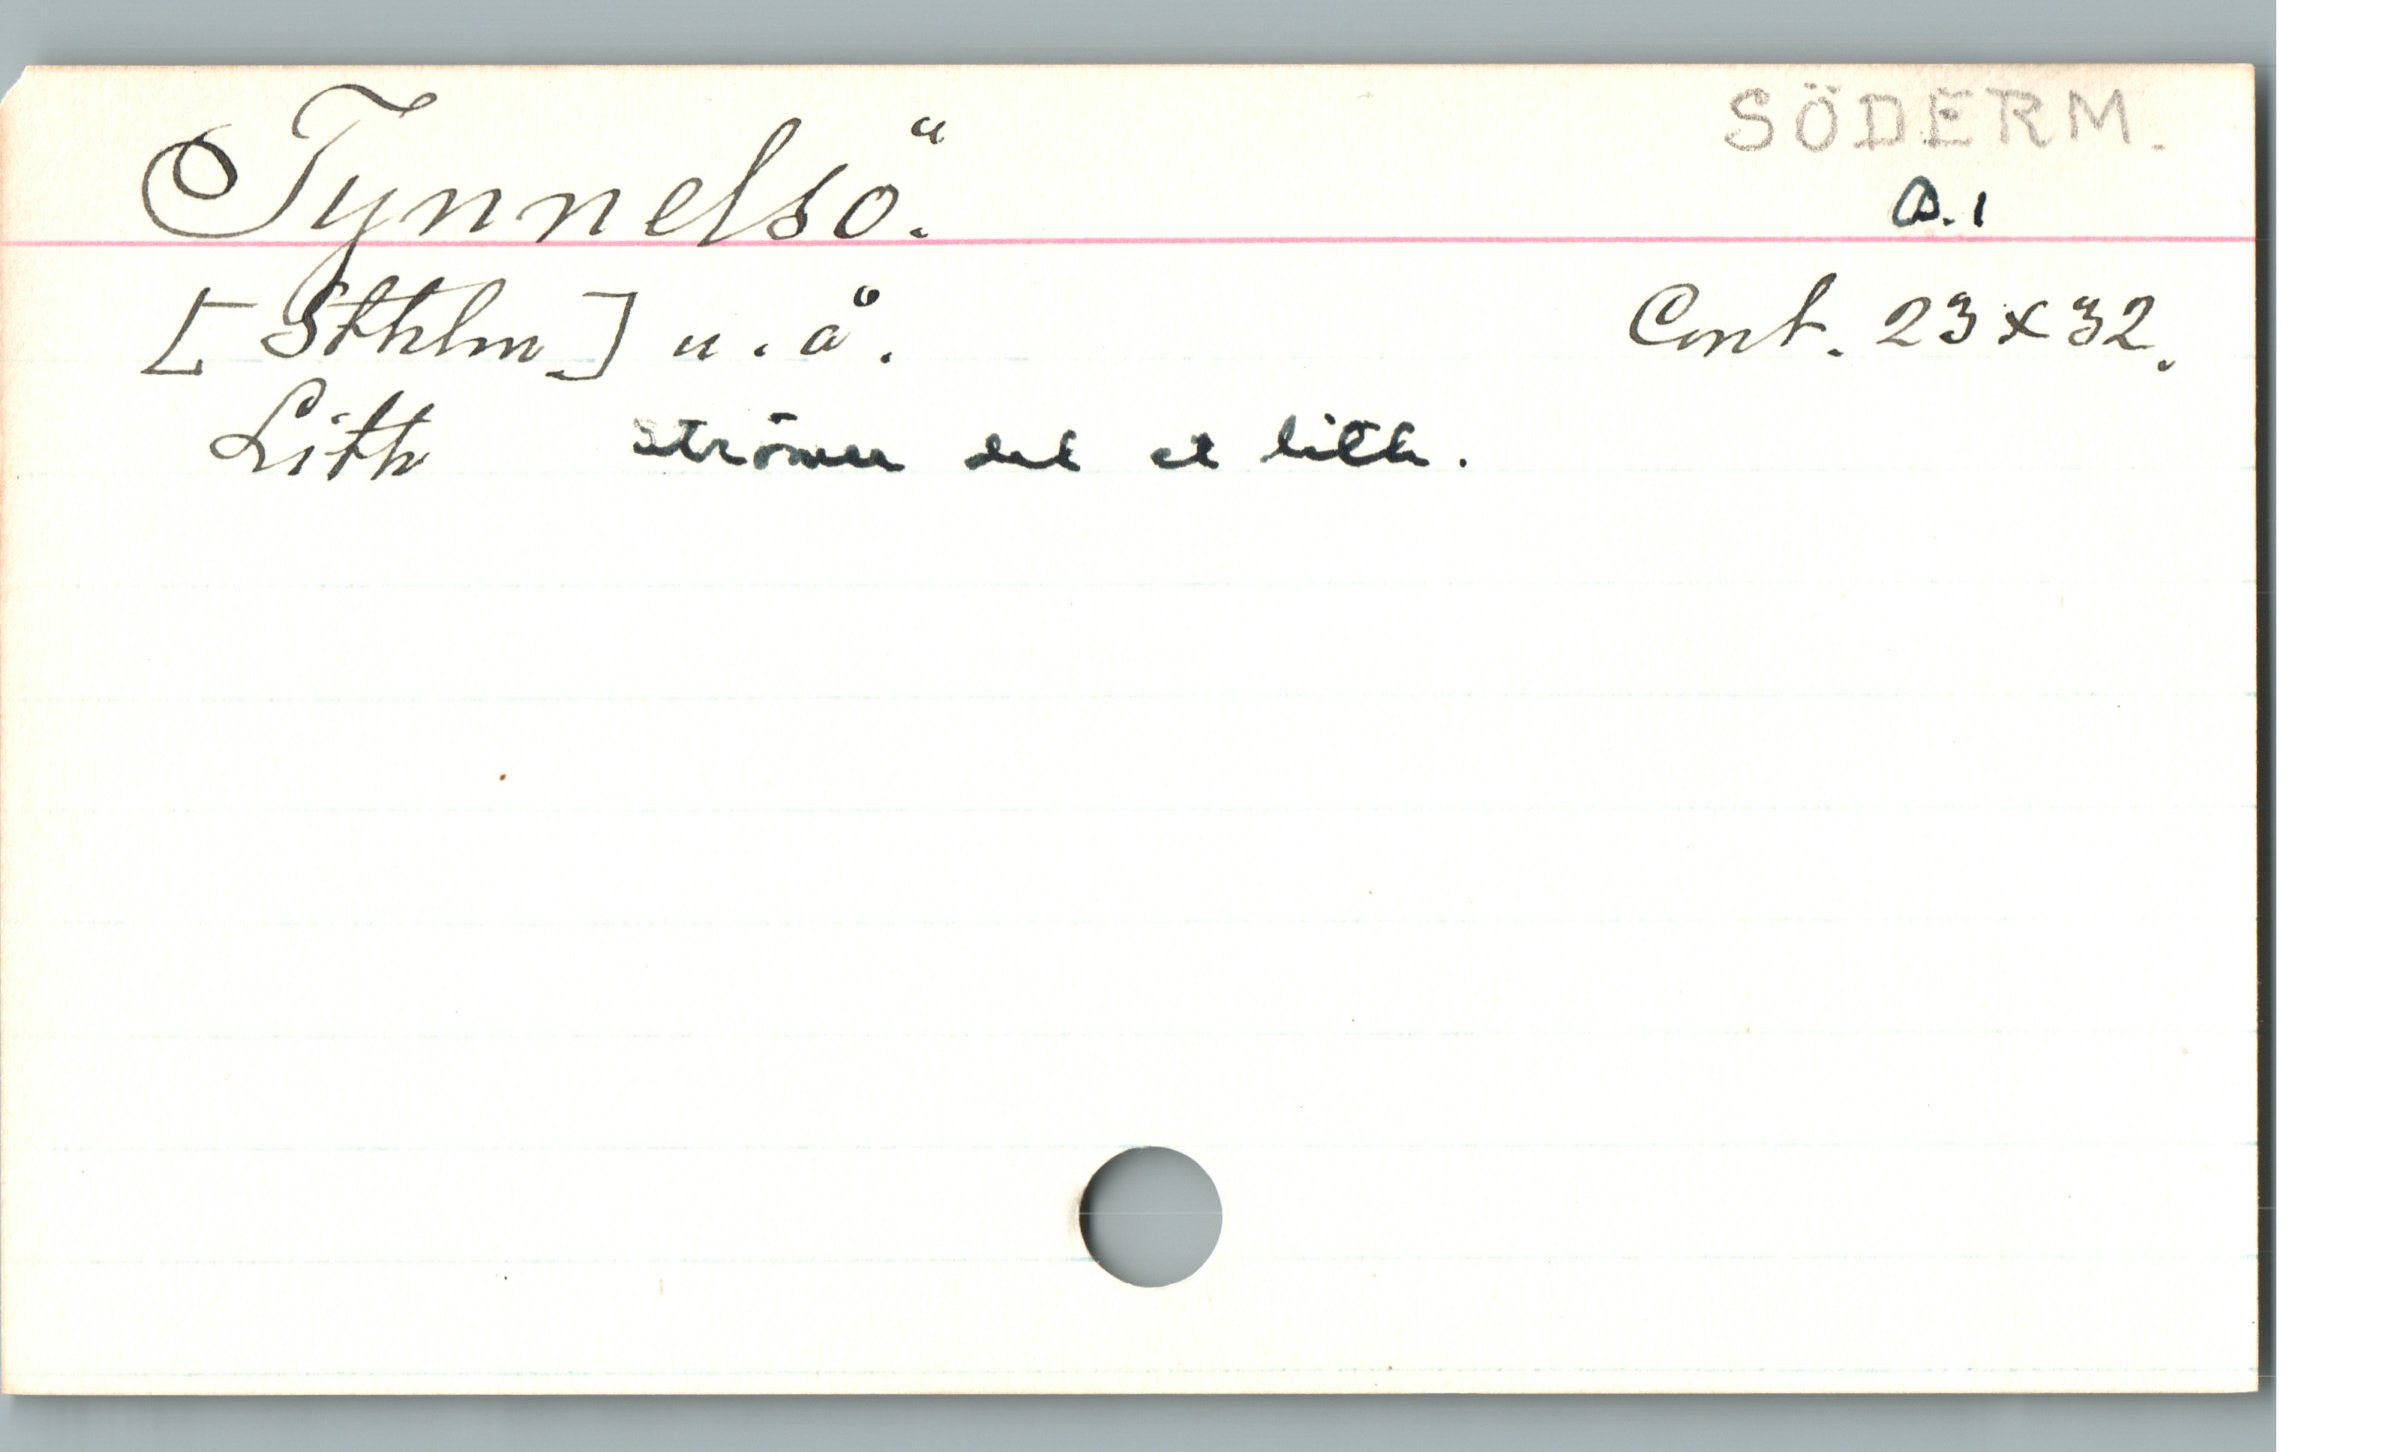 SÖDERM.
Tynnelsö.
D. 1
[Sthlm] u. å. Cont. 23 x 32.
Lith Strömer del et lith.